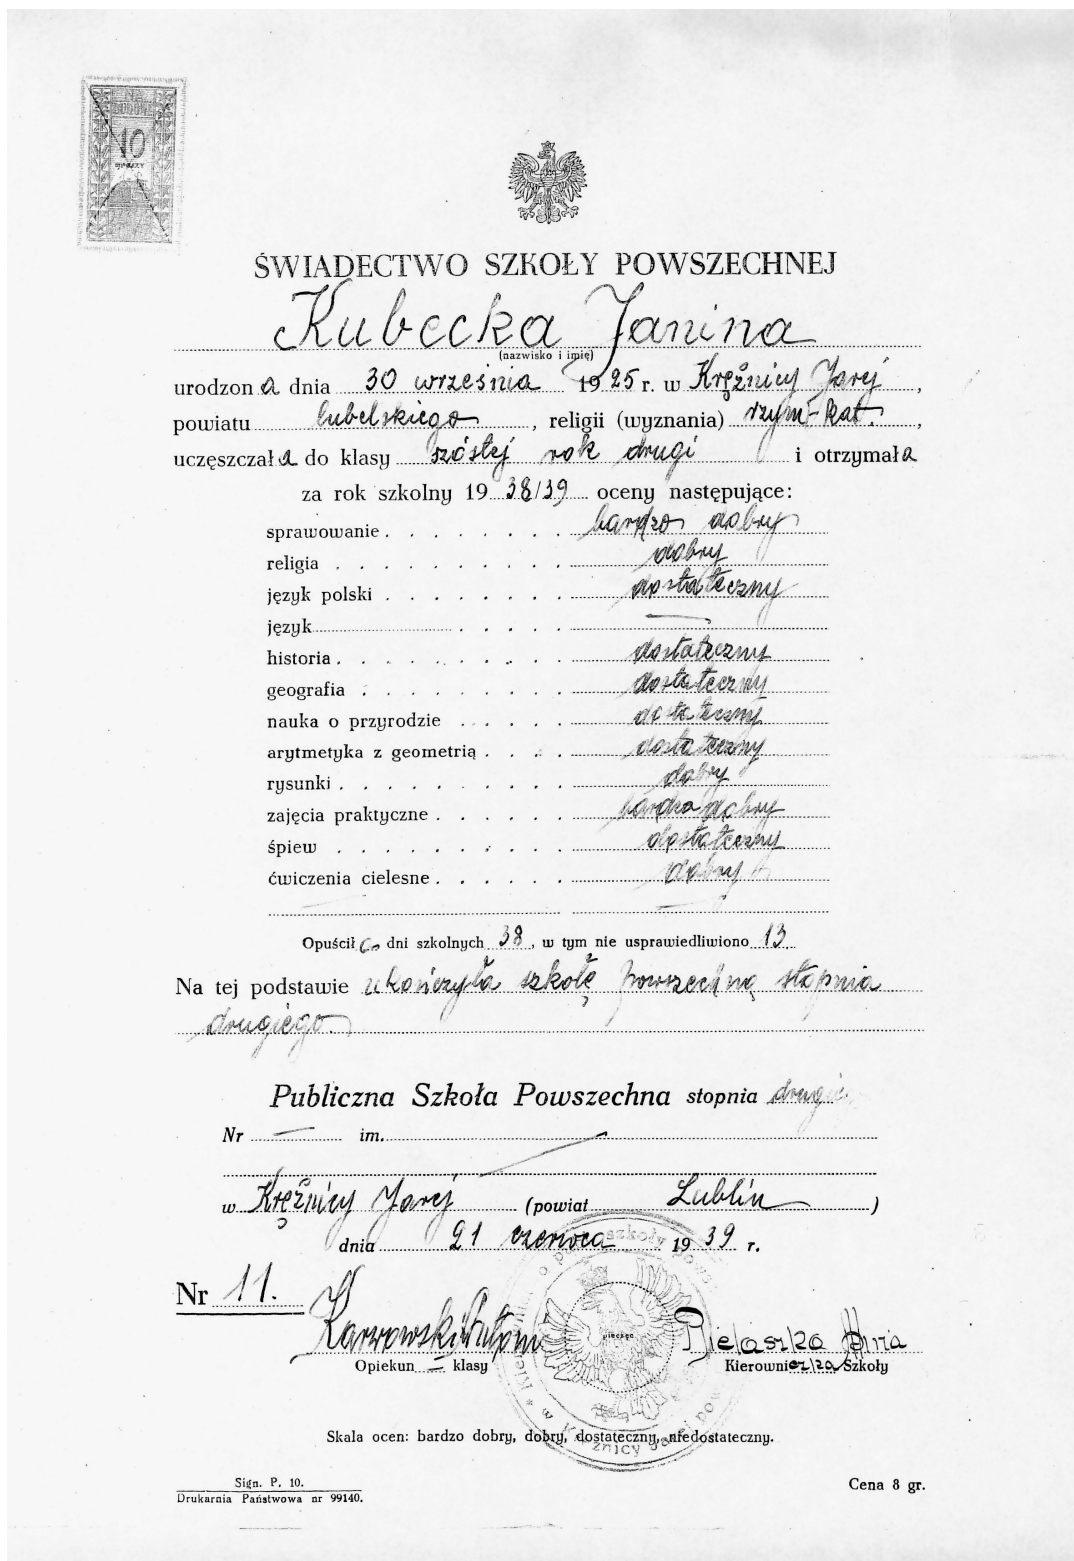 NA
BUDOWĘ
10
GROSZY
ŚWIADECTWO SZKOŁY POWSZECHNEJ
Kubecka Janina
(nazwisko i imię)
urodzona dnia 30 września 1925 r. w Krężnicy Jarej,
powiatu lubelskiego, religii (wyznania) rzym-kat.,
uczęszczała do klasy szóstej rok drugi i otrzymała
za rok szkolny 1938/39 oceny następujące:
sprawowanie bardzo dobry
religia dobry
język polski dostateczny
język —
historia dostateczny
geografia dostateczny
nauka o przyrodzie dostateczny
arytmetyka z geometrią dostateczny
rysunki dobry
zajęcia praktyczne bardzo dobry
śpiew dostateczny
ćwiczenia cielesne dobry
Opuściła dni szkolnych 38, w tym nie usprawiedliwiono 13
Na tej podstawie ukończyła szkołę powszechną stopnia
drugiego
Publiczna Szkoła Powszechna stopnia drugiego
Nr — im. —
w Krężnicy Jarej (powiat Lublin)
dnia 21 czerwca 1939 r.
Nr 11.
Opiekun — klasy
Pielaszka Anna
Kierowniczka Szkoły
pieczęć
Skala ocen: bardzo dobry, dobry, dostateczny, niedostateczny.
Sign. P. 10.
Drukarnia Państwowa nr 99140.
Cena 8 gr.